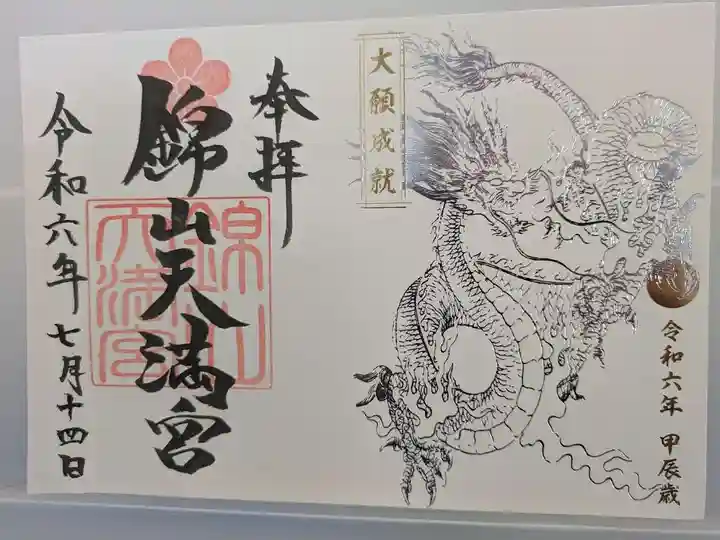 大願成就
令和六年 甲辰歳
奉拝
錦山天満宮
錦山
天満宮
令和六年七月十四日